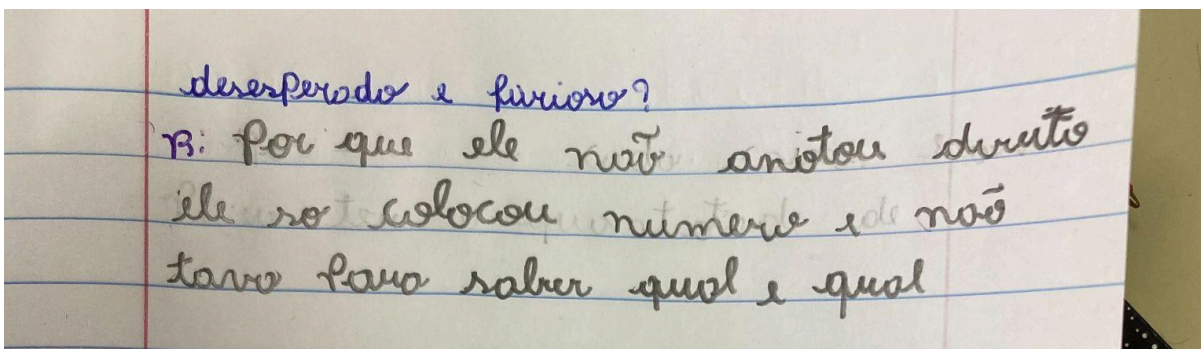 desesperado e furioso?
R: Por que ele não anotou direito
ele so colocou numero e não
tava para saber qual e qual